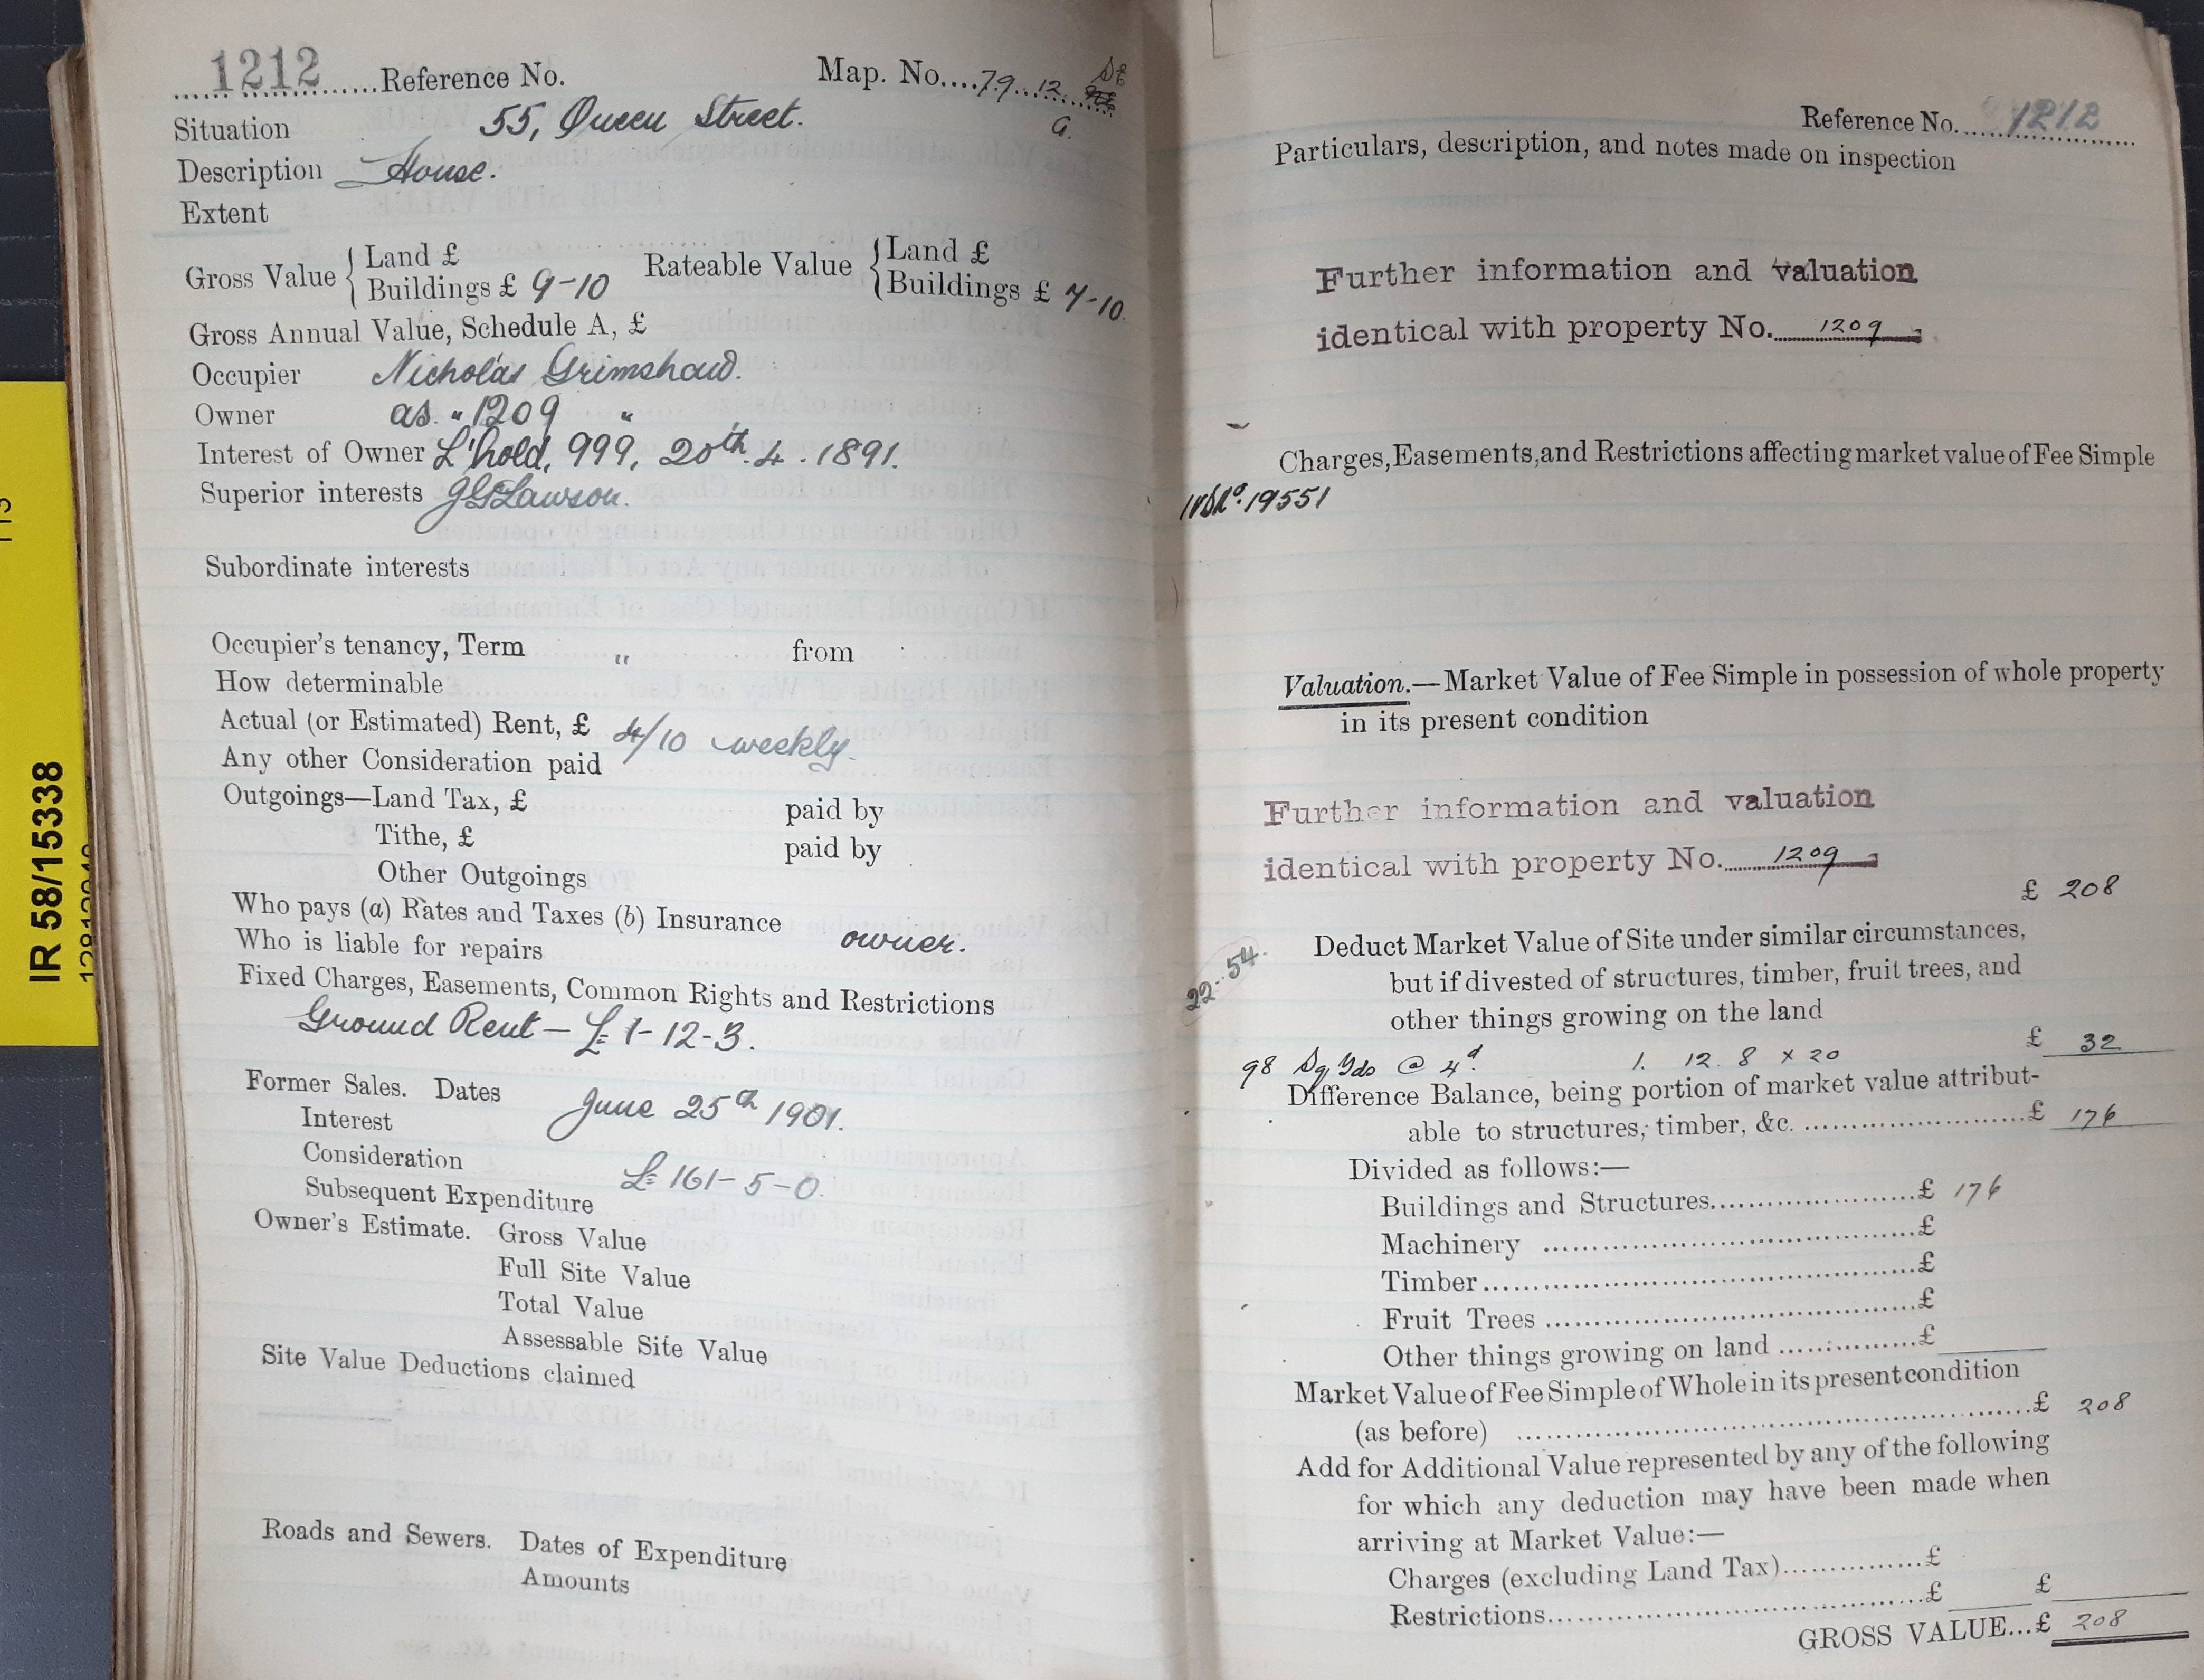 1212 Reference No.
Map. No....79.12 St
G.
Situation 55, Queen Street.
Description House.
Extent
Gross Value { Land £
Buildings £ 9-10
Rateable Value { Land £
Buildings £ 7-10.
Gross Annual Value, Schedule A, £
Occupier Nicholas Grimshaw.
Owner as " 1209 "
Interest of Owner L'hold, 999, 20th. 4. 1891.
Superior interests J G Lawson.
Subordinate interests
Occupier's tenancy, Term " from
How determinable
Actual (or Estimated) Rent, £ 4/10 weekly.
Any other Consideration paid
Outgoings—Land Tax, £ paid by
Tithe, £ paid by
Other Outgoings
Who pays (a) Rates and Taxes (b) Insurance
Who is liable for repairs owner.
Fixed Charges, Easements, Common Rights and Restrictions
Ground Rent — £1-12-3.
Former Sales. Dates June 25th 1901.
Interest
Consideration £161-5-0.
Subsequent Expenditure
Owner's Estimate. Gross Value
Full Site Value
Total Value
Assessable Site Value
Site Value Deductions claimed
Roads and Sewers. Dates of Expenditure
Amounts
IR 58/15338
Reference No. 1212
Particulars, description, and notes made on inspection
Further information and valuation
identical with property No. 1209
Charges, Easements, and Restrictions affecting market value of Fee Simple
19551
Valuation.—Market Value of Fee Simple in possession of whole property
in its present condition
Further information and valuation
identical with property No. 1209
£ 208
22.54.
Deduct Market Value of Site under similar circumstances,
but if divested of structures, timber, fruit trees, and
other things growing on the land
£ 32
98 Sq Yds @ 4d 1. 12. 8 x 20
Difference Balance, being portion of market value attribut-
able to structures, timber, &c. £ 176
Divided as follows:—
Buildings and Structures £ 176
Machinery £
Timber £
Fruit Trees £
Other things growing on land £
Market Value of Fee Simple of Whole in its present condition
(as before) £ 208
Add for Additional Value represented by any of the following
for which any deduction may have been made when
arriving at Market Value:—
Charges (excluding Land Tax) £
Restrictions £ £
GROSS VALUE...£ 208